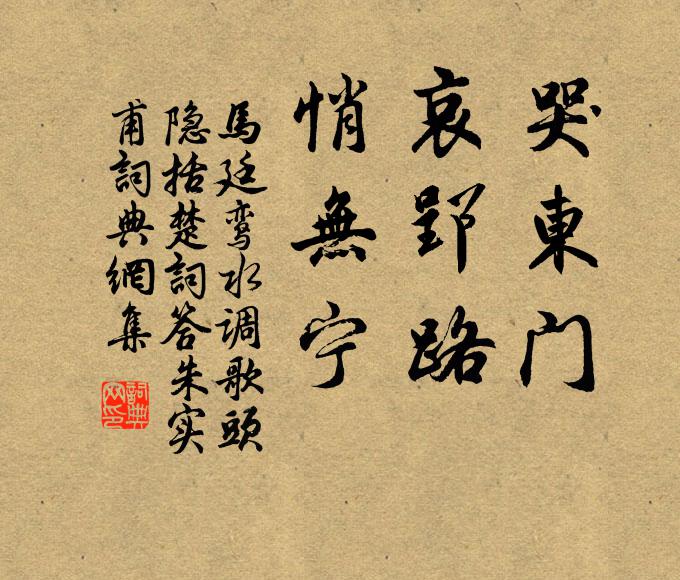 哭東门
哀郢路
悄無宁
馬廷鸾水调歌頭
隐括楚詞答朱实
甫詞典網集
詞典
网印